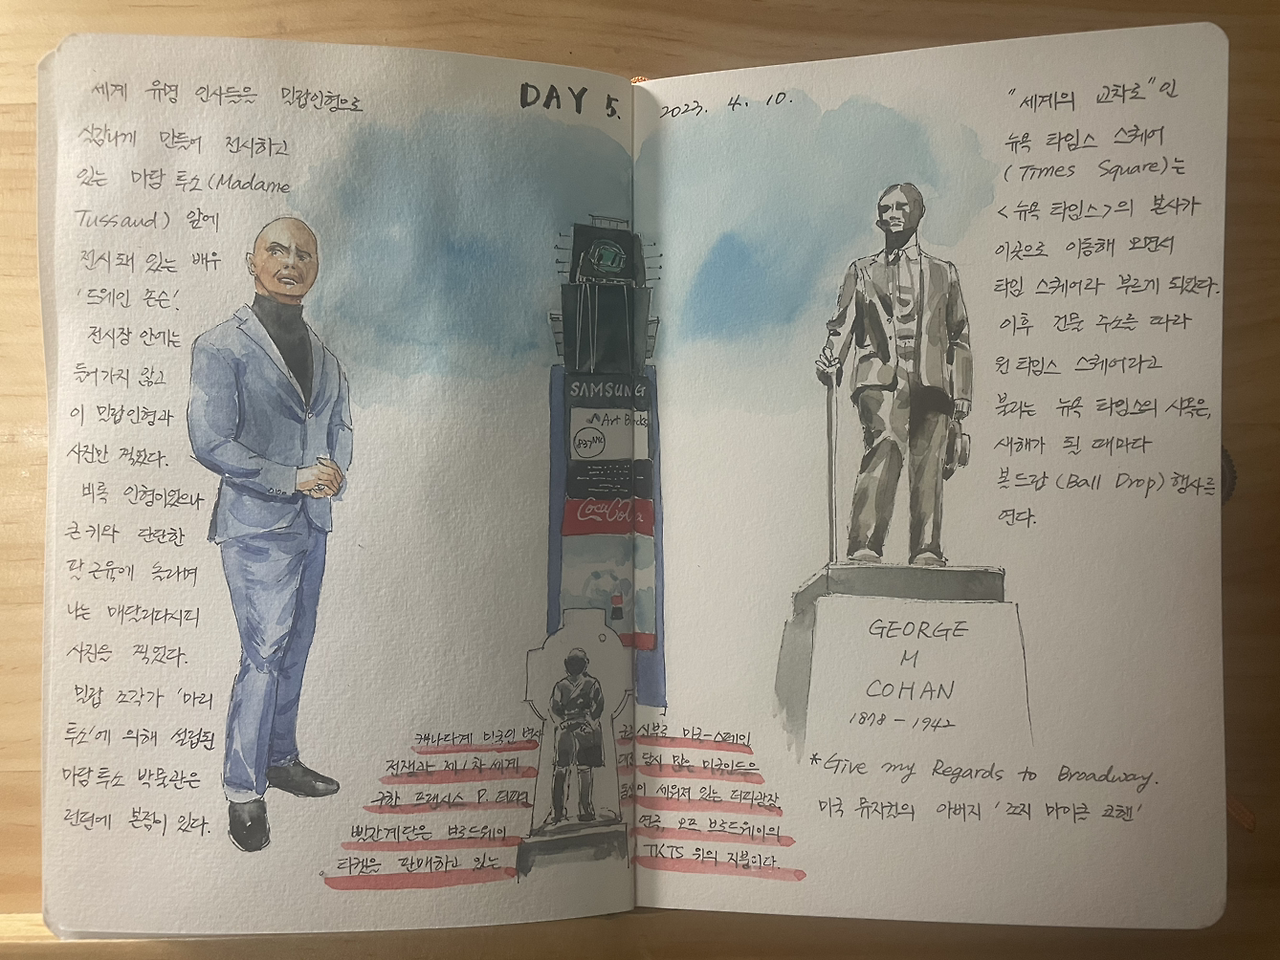 DAY 5. 2023. 4. 10.
세계 유명 인사들을 밀랍인형으로
실감나게 만들어 전시하고
있는 마담 투소 (Madame
Tussaud) 앞에
전시돼 있는 배우
'드웨인 존슨'.
전시장 안에는
들어가지 않고
이 밀랍인형과
사진만 찍었다.
비록 인형이었으나
큰 키와 단단한
팔 근육에 놀라며
나는 매달리다시피
사진을 찍었다.
밀랍 조각가 '마리
투소'에 의해 설립된
마담 투소 박물관은
런던에 본점이 있다.
SAMSUNG
Art Blocks
837 NYC
Coca Cola
캐나다계 미국인 병사 군종 신부로, 미국-스페인
전쟁과 제1차 세계 대전 당시 많은 미국인들을
구한 프랜시스 P. 더피의 동상이 세워져 있는 더피광장.
빨간계단은 브로드웨이 연극, 오프 브로드웨이의
티켓을 판매하고 있는 TKTS 위의 지붕이다.
"세계의 교차로"인
뉴욕 타임스 스퀘어
(Times Square)는
<뉴욕 타임스>의 본사가
이곳으로 이동해 오면서
타임 스퀘어라 부르게 되었다.
이후 건물 주소를 따라
원 타임스 스퀘어라고
불리는 뉴욕 타임스의 사옥은,
새해가 될 때마다
볼드랍 (Ball Drop) 행사를
연다.
GEORGE
M
COHAN
1878 - 1942
*Give my Regards to Broadway.
미국 뮤지컬의 아버지 '조지 마이클 코핸'